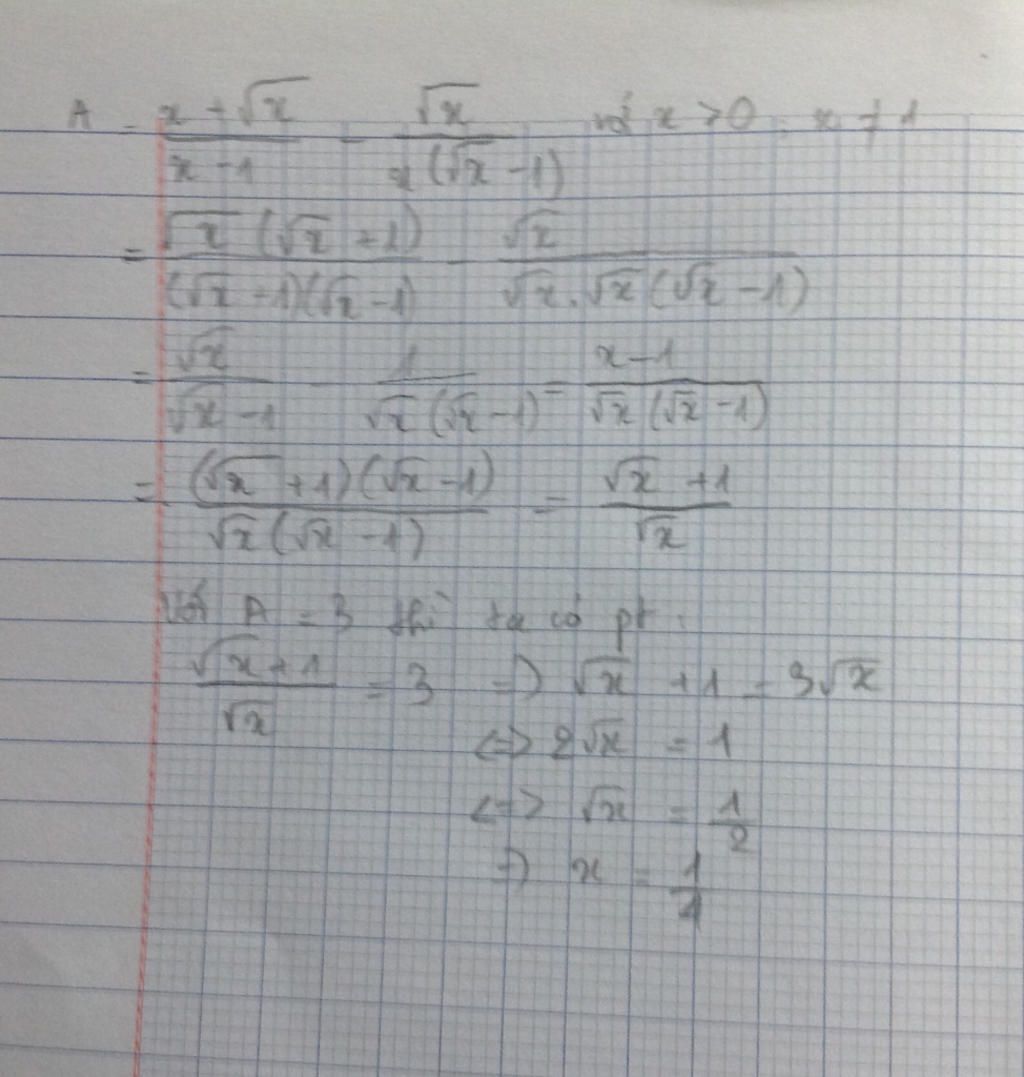 A = \frac{x + \sqrt{x}}{x - 1} - \frac{\sqrt{x}}{x(\sqrt{x} - 1)} với x > 0 ; x ≠ 1
= \frac{\sqrt{x}(\sqrt{x} + 1)}{(\sqrt{x} + 1)(\sqrt{x} - 1)} - \frac{\sqrt{x}}{\sqrt{x}.\sqrt{x}(\sqrt{x} - 1)}
= \frac{\sqrt{x}}{\sqrt{x} - 1} - \frac{1}{\sqrt{x}(\sqrt{x} - 1)} = \frac{x - 1}{\sqrt{x}(\sqrt{x} - 1)}
= \frac{(\sqrt{x} + 1)(\sqrt{x} - 1)}{\sqrt{x}(\sqrt{x} - 1)} = \frac{\sqrt{x} + 1}{\sqrt{x}}
Với A = 3 thì ta có pt :
\frac{\sqrt{x} + 1}{\sqrt{x}} = 3 => \sqrt{x} + 1 = 3\sqrt{x}
<=> 2\sqrt{x} = 1
<=> \sqrt{x} = \frac{1}{2}
=> x = \frac{1}{4}